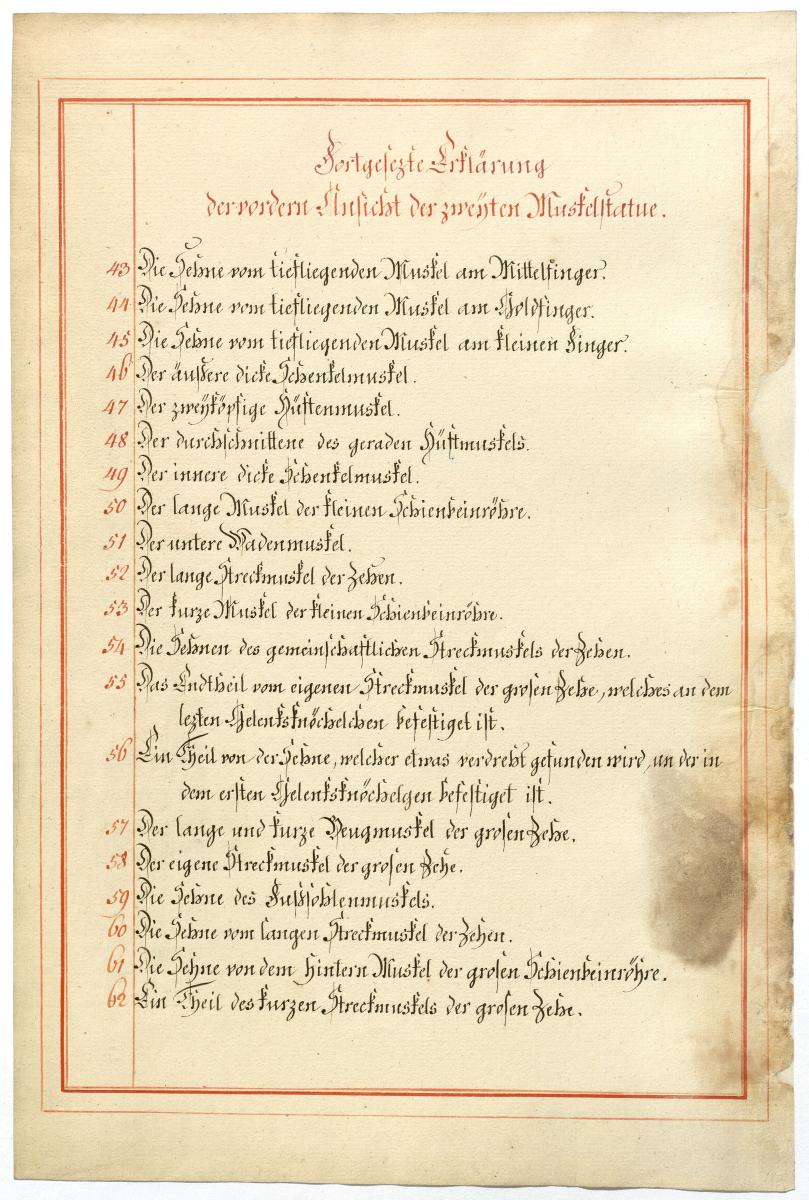 Fortgesezte Erklärung
der vordern Ansicht der zweÿten Muskelstatue.
43 Die Sehne vom tiefliegenden Muskel am Mittelfinger.
44 Die Sehne vom tiefliegenden Muskel am Goldfinger.
45 Die Sehne vom tiefliegenden Muskel am kleinen Finger.
46 Der äußere dicke Schenkelmuskel.
47 Der zweÿköpfige Hüftenmuskel.
48 Der durchschnittene des geraden Hüftmuskels.
49 Der innere dicke Schenkelmuskel.
50 Der lange Muskel der kleinen Schienbeinröhre.
51 Der untere Wadenmuskel.
52 Der lange Streckmuskel der Zehen.
53 Der kurze Muskel der kleinen Schienbeinröhre.
54 Die Sehnen des gemeinschaftlichen Streckmuskels der Zehen.
55 Das Endtheil vom eigenen Streckmuskel der grosen Zehe, welches an dem
lezten Gelenksknöchelchen befestiget ist.
56 Ein Theil von der Sehne, welcher etwas verdreht gefunden wird, un der in
dem ersten Gelenksknöchelgen befestiget ist.
57 Der lange und kurze Beugmuskel der grosen Zehe.
58 Der eigene Streckmuskel der grosen Zehe.
59 Die Sehne des Fußsohlenmuskels.
60 Die Sehne vom langen Streckmuskel der Zehen.
61 Die Sehne von dem hintern Muskel der grosen Schienbeinröhre.
62 Ein Theil des kurzen Streckmuskels der grosen Zehe.